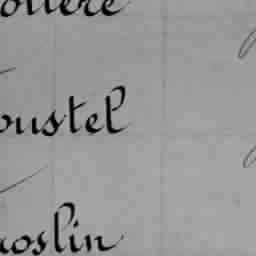 ollere
oustel
roslin